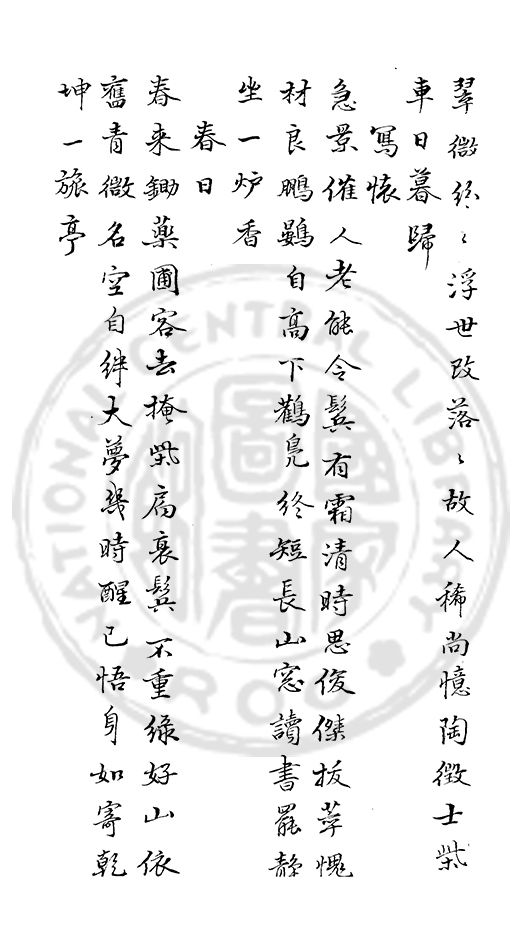 翠微紛〻浮世改落〻故人稀尚憶陶徵士柴
車日暮歸
寫懷
急景催人老能令鬂有霜清時思俊傑拔萃愧
材良鵬鷃自高下鶴鳧終短長山窓讀書罷静
坐一炉香
春日
春来鋤藥圃客去掩柴扃衰鬂不重緑好山依
舊青微名空自絆大夢幾時醒已悟身如寄乾
坤一旅亭